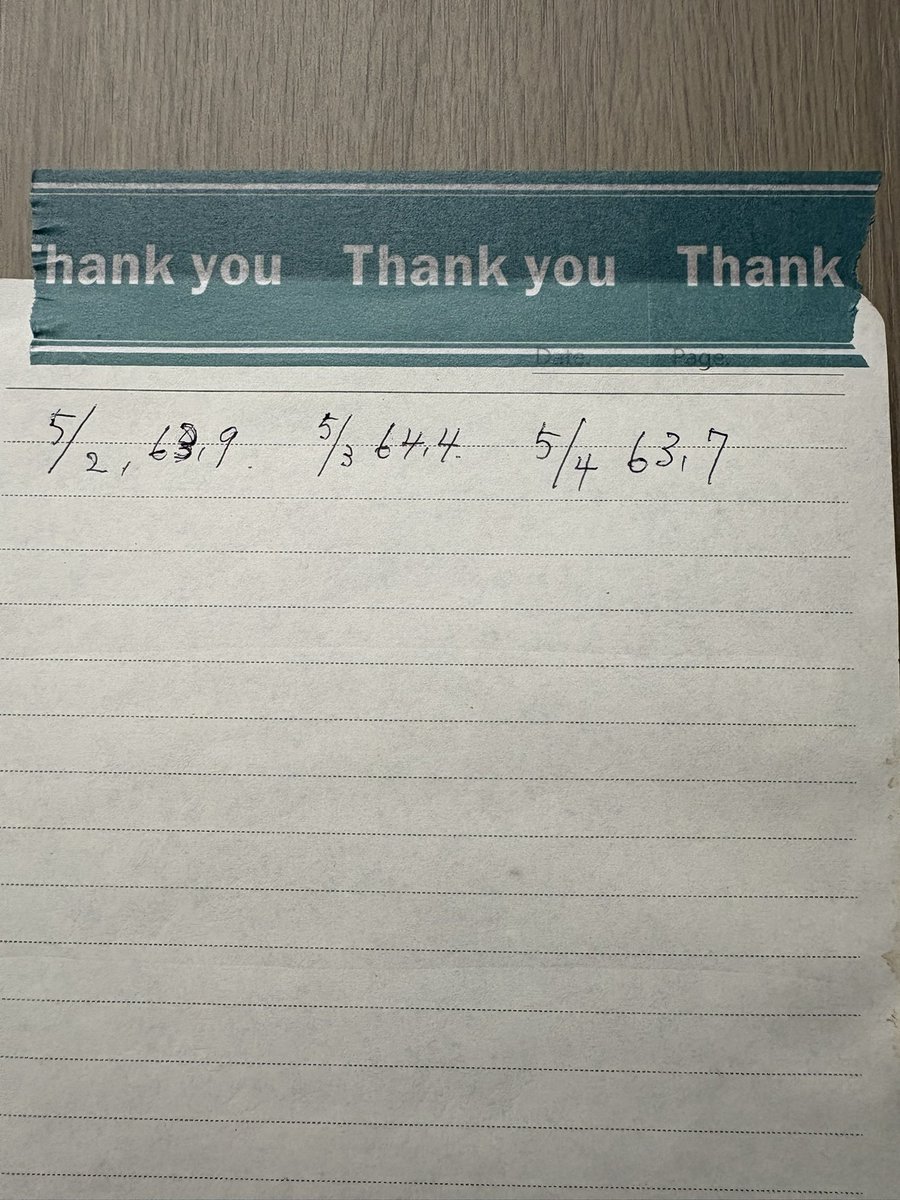 Thank you Thank you Thank
Date. Page.
5/2, 63.9. 5/3 64.4. 5/4 63.7